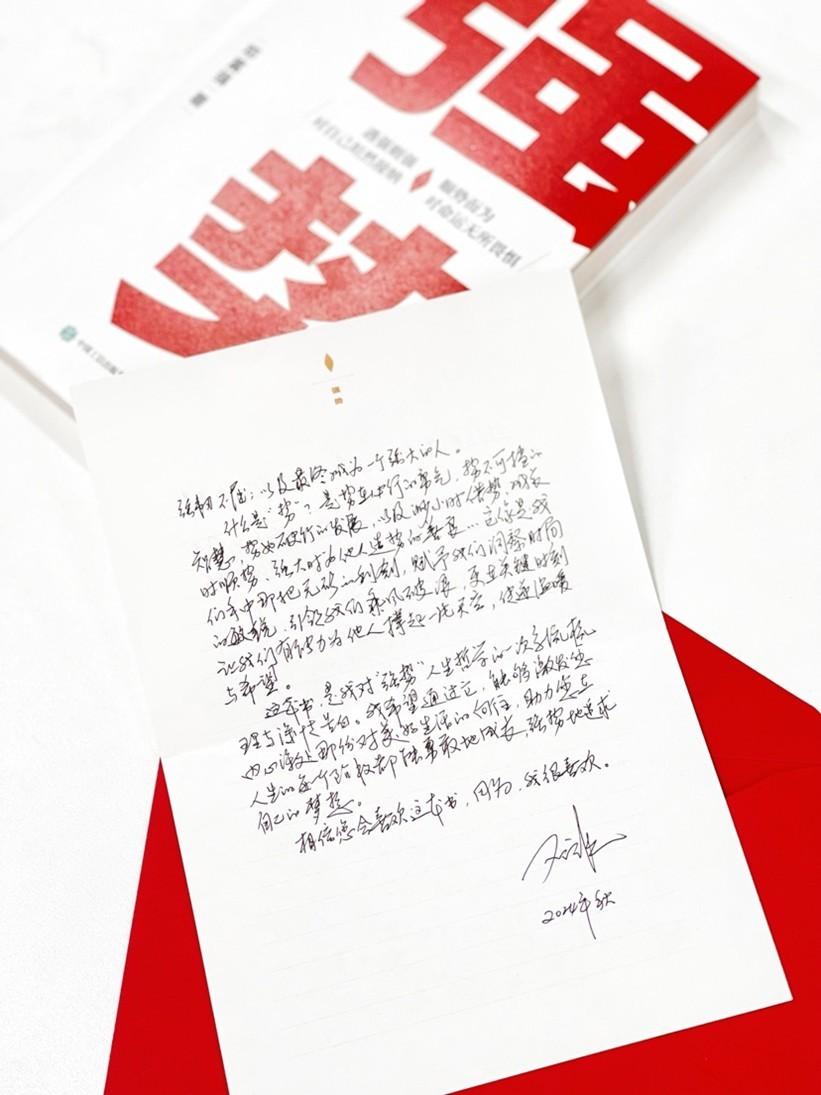 强势
遇强则强
对自己坦然接纳
顺势而为
对命运无所畏惧
强势
强韧不屈；以及最终成为一个强大的人。
什么是“势”？是势在必行的勇气，势不可挡的
智慧，势如破竹的发展，以及弱小时借势、成长
时顺势、强大时为他人造势的善良…这像是我
们手中那把无形的利剑，赋予我们洞察时局
的敏锐，引领我们乘风破浪，更在关键时刻
让我们有能力为他人撑起一片天空，传递温暖
与希望。
这本书，是我对“强势”人生哲学的一次系统梳
理与深情告白。我希望通过它，能够激发您
内心深处那份对美好生活的向往，助力您在
人生的每个阶段都能勇敢地成长，强势地追求
自己的梦想。
相信您会喜欢这本书，因为，我很喜欢。
2024年秋